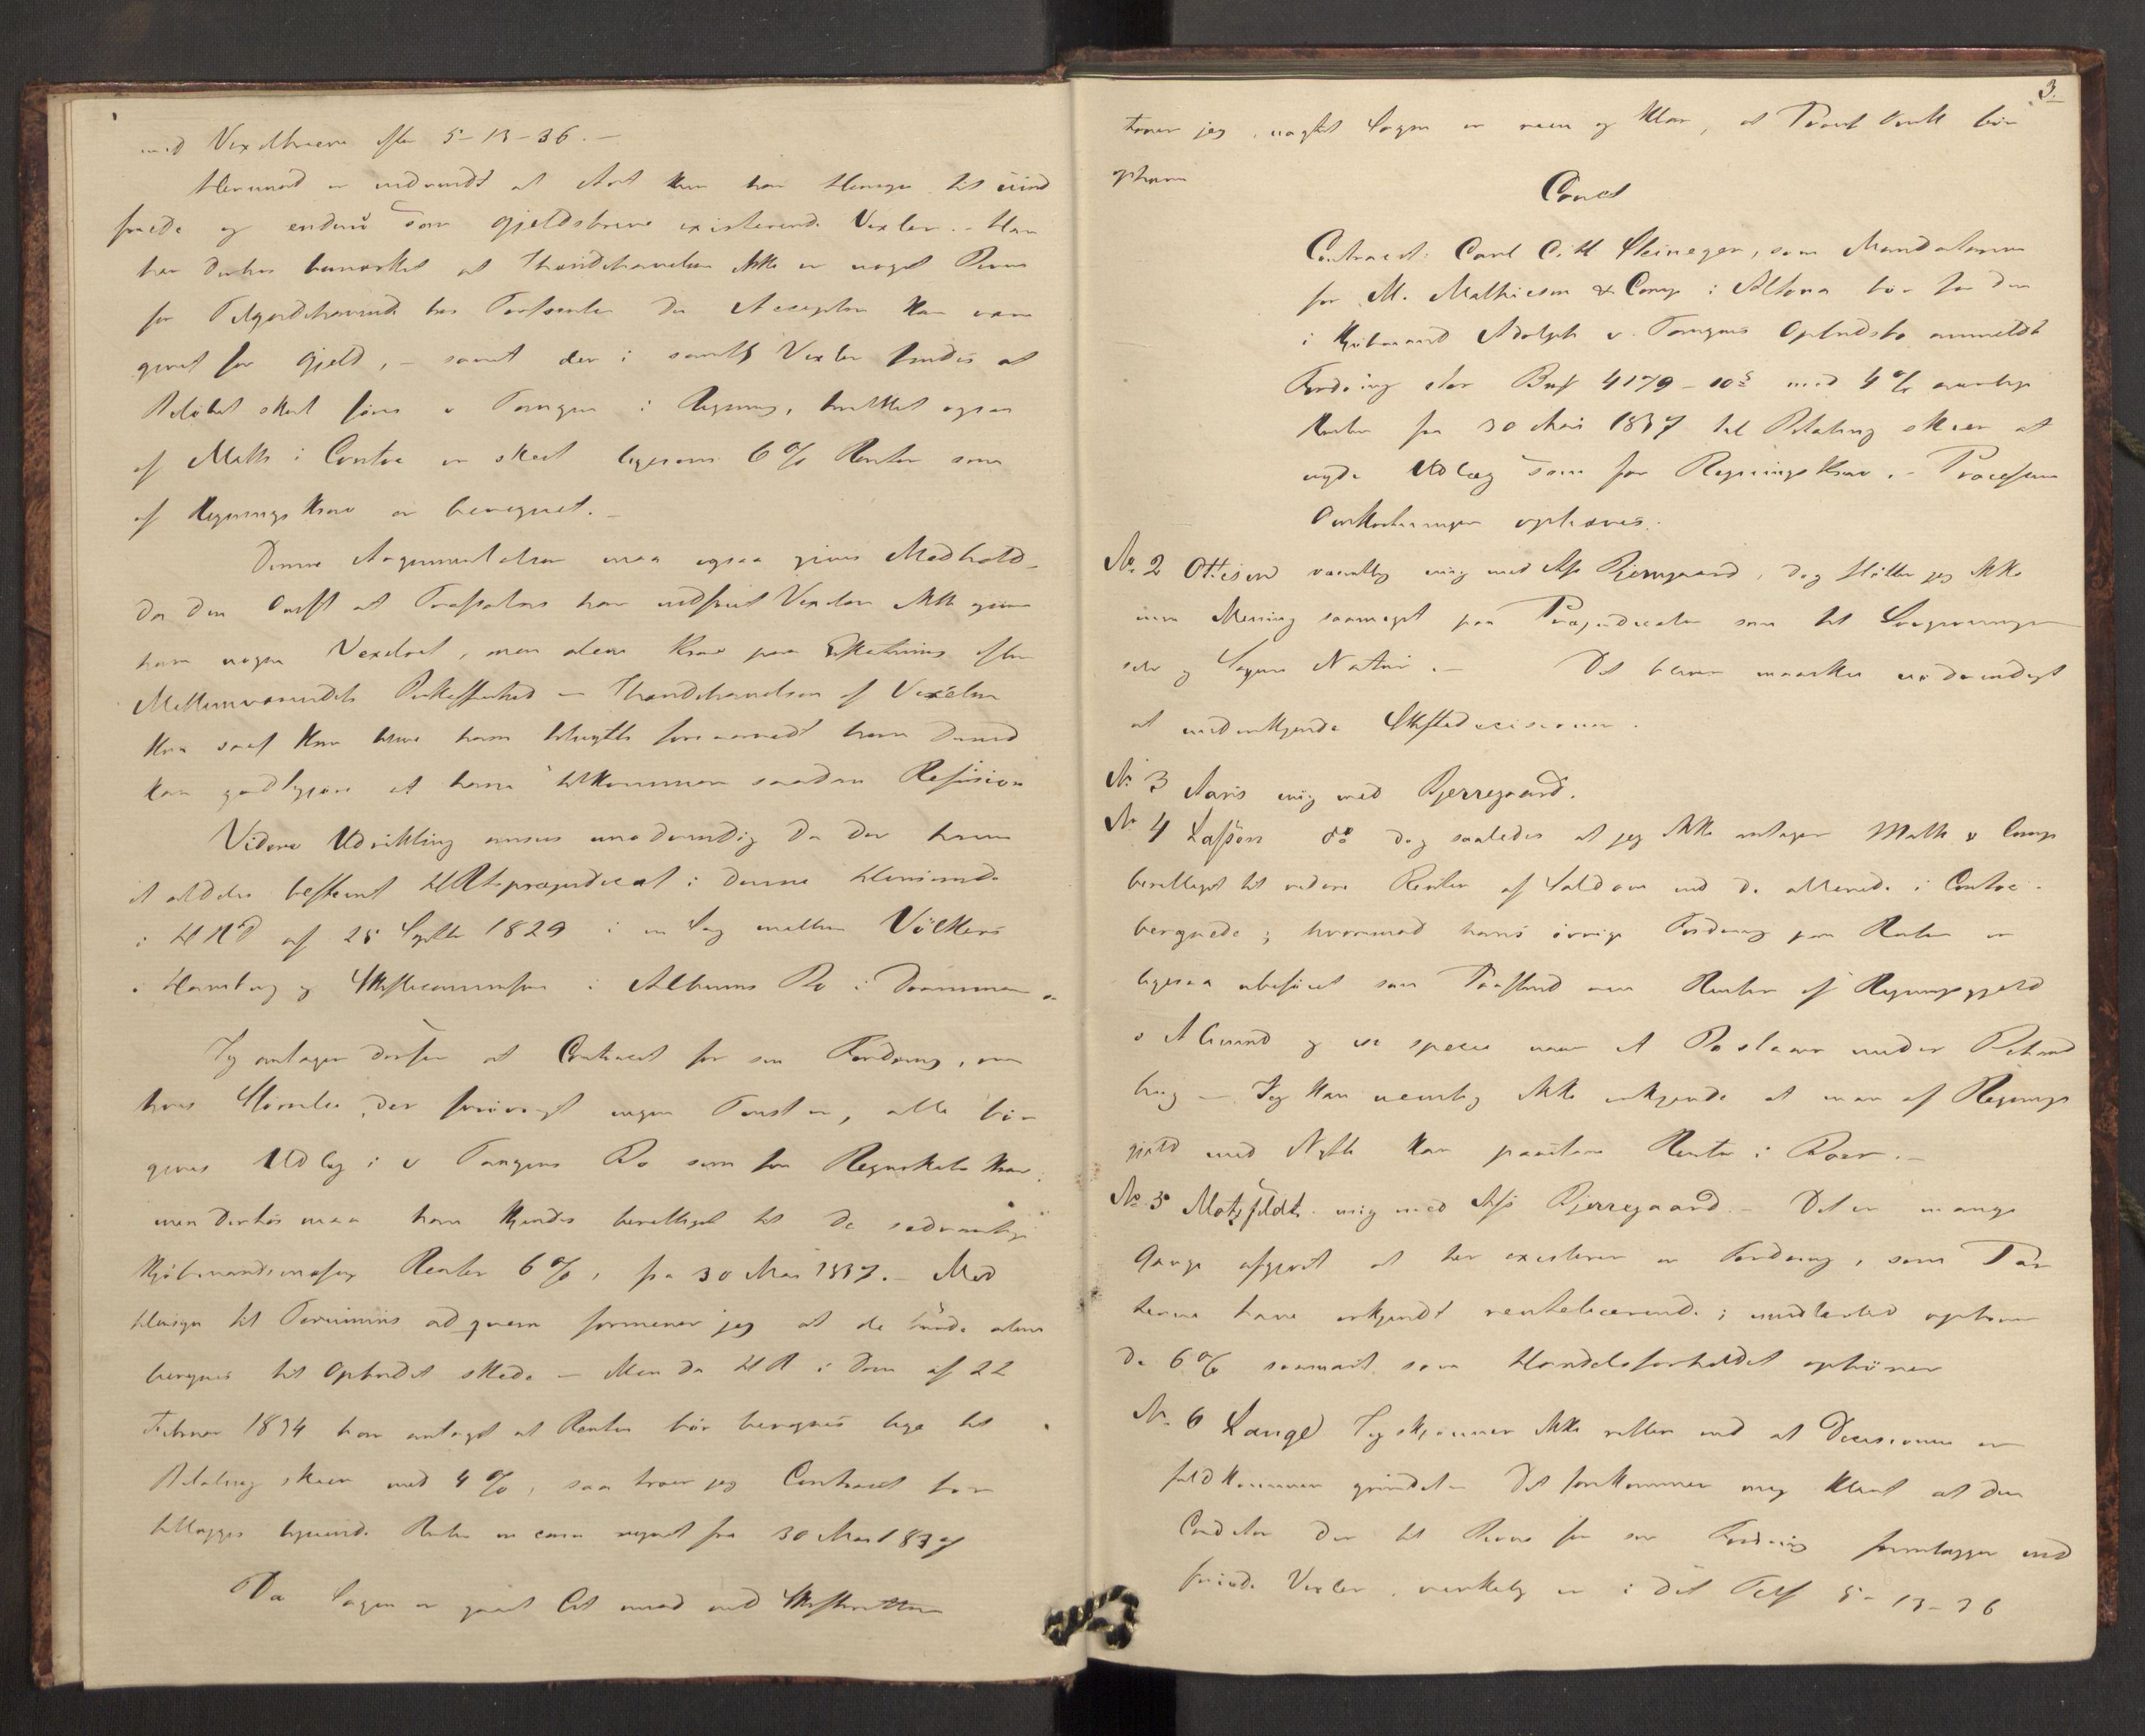 med Vexelbrevene efter 5-13-36.-
Herimod er indvendt at kun har Hensyn til ind
friede og endnu som Gjeldsbreve existerende Vexler. - Han
har derhos bemærket at Ihændehavelsen ikke er noget Beviis
for Tilgodehavende hos Trassenten da Accepten kan være
givet for Gjeld, - samt der i samtl Vexler findes at
Beløbet skal føres v Tangen i Regning, hvilket ogsaa
af Math i Contoe er skeet ligesom 6 % Renter som
af Regningskrav er beregnet. -
Denne Argumentation maa ogsaa gives Medhold-
da den at Trassatus har indfriet Vexlen ikke giver
ham nogen Vexelret, men alene Krav paa efter
Mellemværendets Beskaffenhed - Ihændehavelsen af Vexelen
kan kun blive ham forsaavidt han derved
kan godtgjøre at ham tilkommer saadan Refusion
Videre Udvikling ansees unødvendig da der haves
et aldeles bestemt HRtspræjudicat i denne Henseende
i HRD af 25 Septbr 1829 i en Sag mellem Völkers
i Hamburg og Skiftecommissionen i Bo i Drammen
Jeg antager derfor at Contracit for sin Fordring, om
hvis Størrelse der forøvrigt ingen Tvist er, alene bør
gives Udlæg i v Tangens Bo som for Regnskabskrav.
men derhos maa han kjendes berettiget til de sædvanlige
Kjøbmandsmæssige Renter 6 %, fra 30 Mai 1837. - Med
Hensyn til Terminus ad quem formener jeg at de burde alene
beregnes til Opbudet skede - Men da HR i Dom af 22
Februar 1834 har antaget at Renter bør beregnes lige til
Betaling skeer med 4 %, saa troer jeg Contracit bør
tillægges lignende Renter in casu regnet fra 30 Mai 1837
Da Sagen er gaaet Cit imod ved Skifteretten
3.
troer jeg, uagtet Sagen er reen og klar, at bør
ophæves
Concl
Contracit: Carl C. H. Steineger, som Mandatarius
for M. Mathiesen & Comp i Altona bør for den
i Kjøbmand Adolph v. Tangens Opbudsbo anmeldte
Fordring stor 4179 - 10 s med 4 % aarlige
Renter fra 30 Mai 1837 til Betaling skeer at
nyde Udlæg som for Regningskrav. - Processens
Omkostninger ophæves.
No. 2 Ottesen væsentlig enig med Ass Bjerregaard, dog støtter jeg ikke
min Mening saameget paa Præjudicater som til Lovgivningen
selv og Sagens Natur. - Det bliver maaskee nødvendigt
at underkjende Skiftedecisionen.
No. 3 Aars enig med Bjerregaard.
No 4 Lasson do dog saaledes at jeg ikke antager Math & Comp
berettiget til videre Renter af Saldoen end de allerede i Contoe
beregnede; hvorimod hans øvrige Fordring paa Renter er
ligesaa ubeføiet som Paastand om Renter af Regningsgjeld
i Alm og in specie naar et Bo staaer under Behand
ling - Jeg kan nemlig ikke erkjende at man af Regnings
gjeld med Nytte kan paastaae Renter i Boer. -
No. 5 Motzfeldt. enig med Ass Bjerregaard. - Det er mange
Gange afgjort at her existerer en Fordring, som Par
terne have erkjendt rentebærende; imidlertid ophører
de 6 % saasnart som Handelsforholdet ophører
No. 6 Lange Jeg skjønner ikke rettere end at Decisionen er
fuldkommen grundet - Det forekommer mig klart at den
Creditor der til Beviis for sin Fordring fremlægger ind
friede Vexler, virkelig er i det Tilf 5-13-36